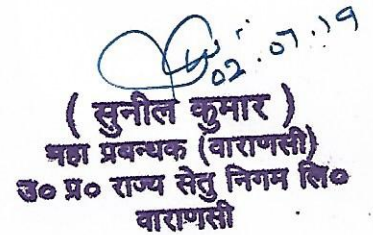 02.07.19
( सुनील कुमार )
महा प्रबन्धक (वाराणसी)
उ० प्र० राज्य सेतु निगम लि०
वाराणसी